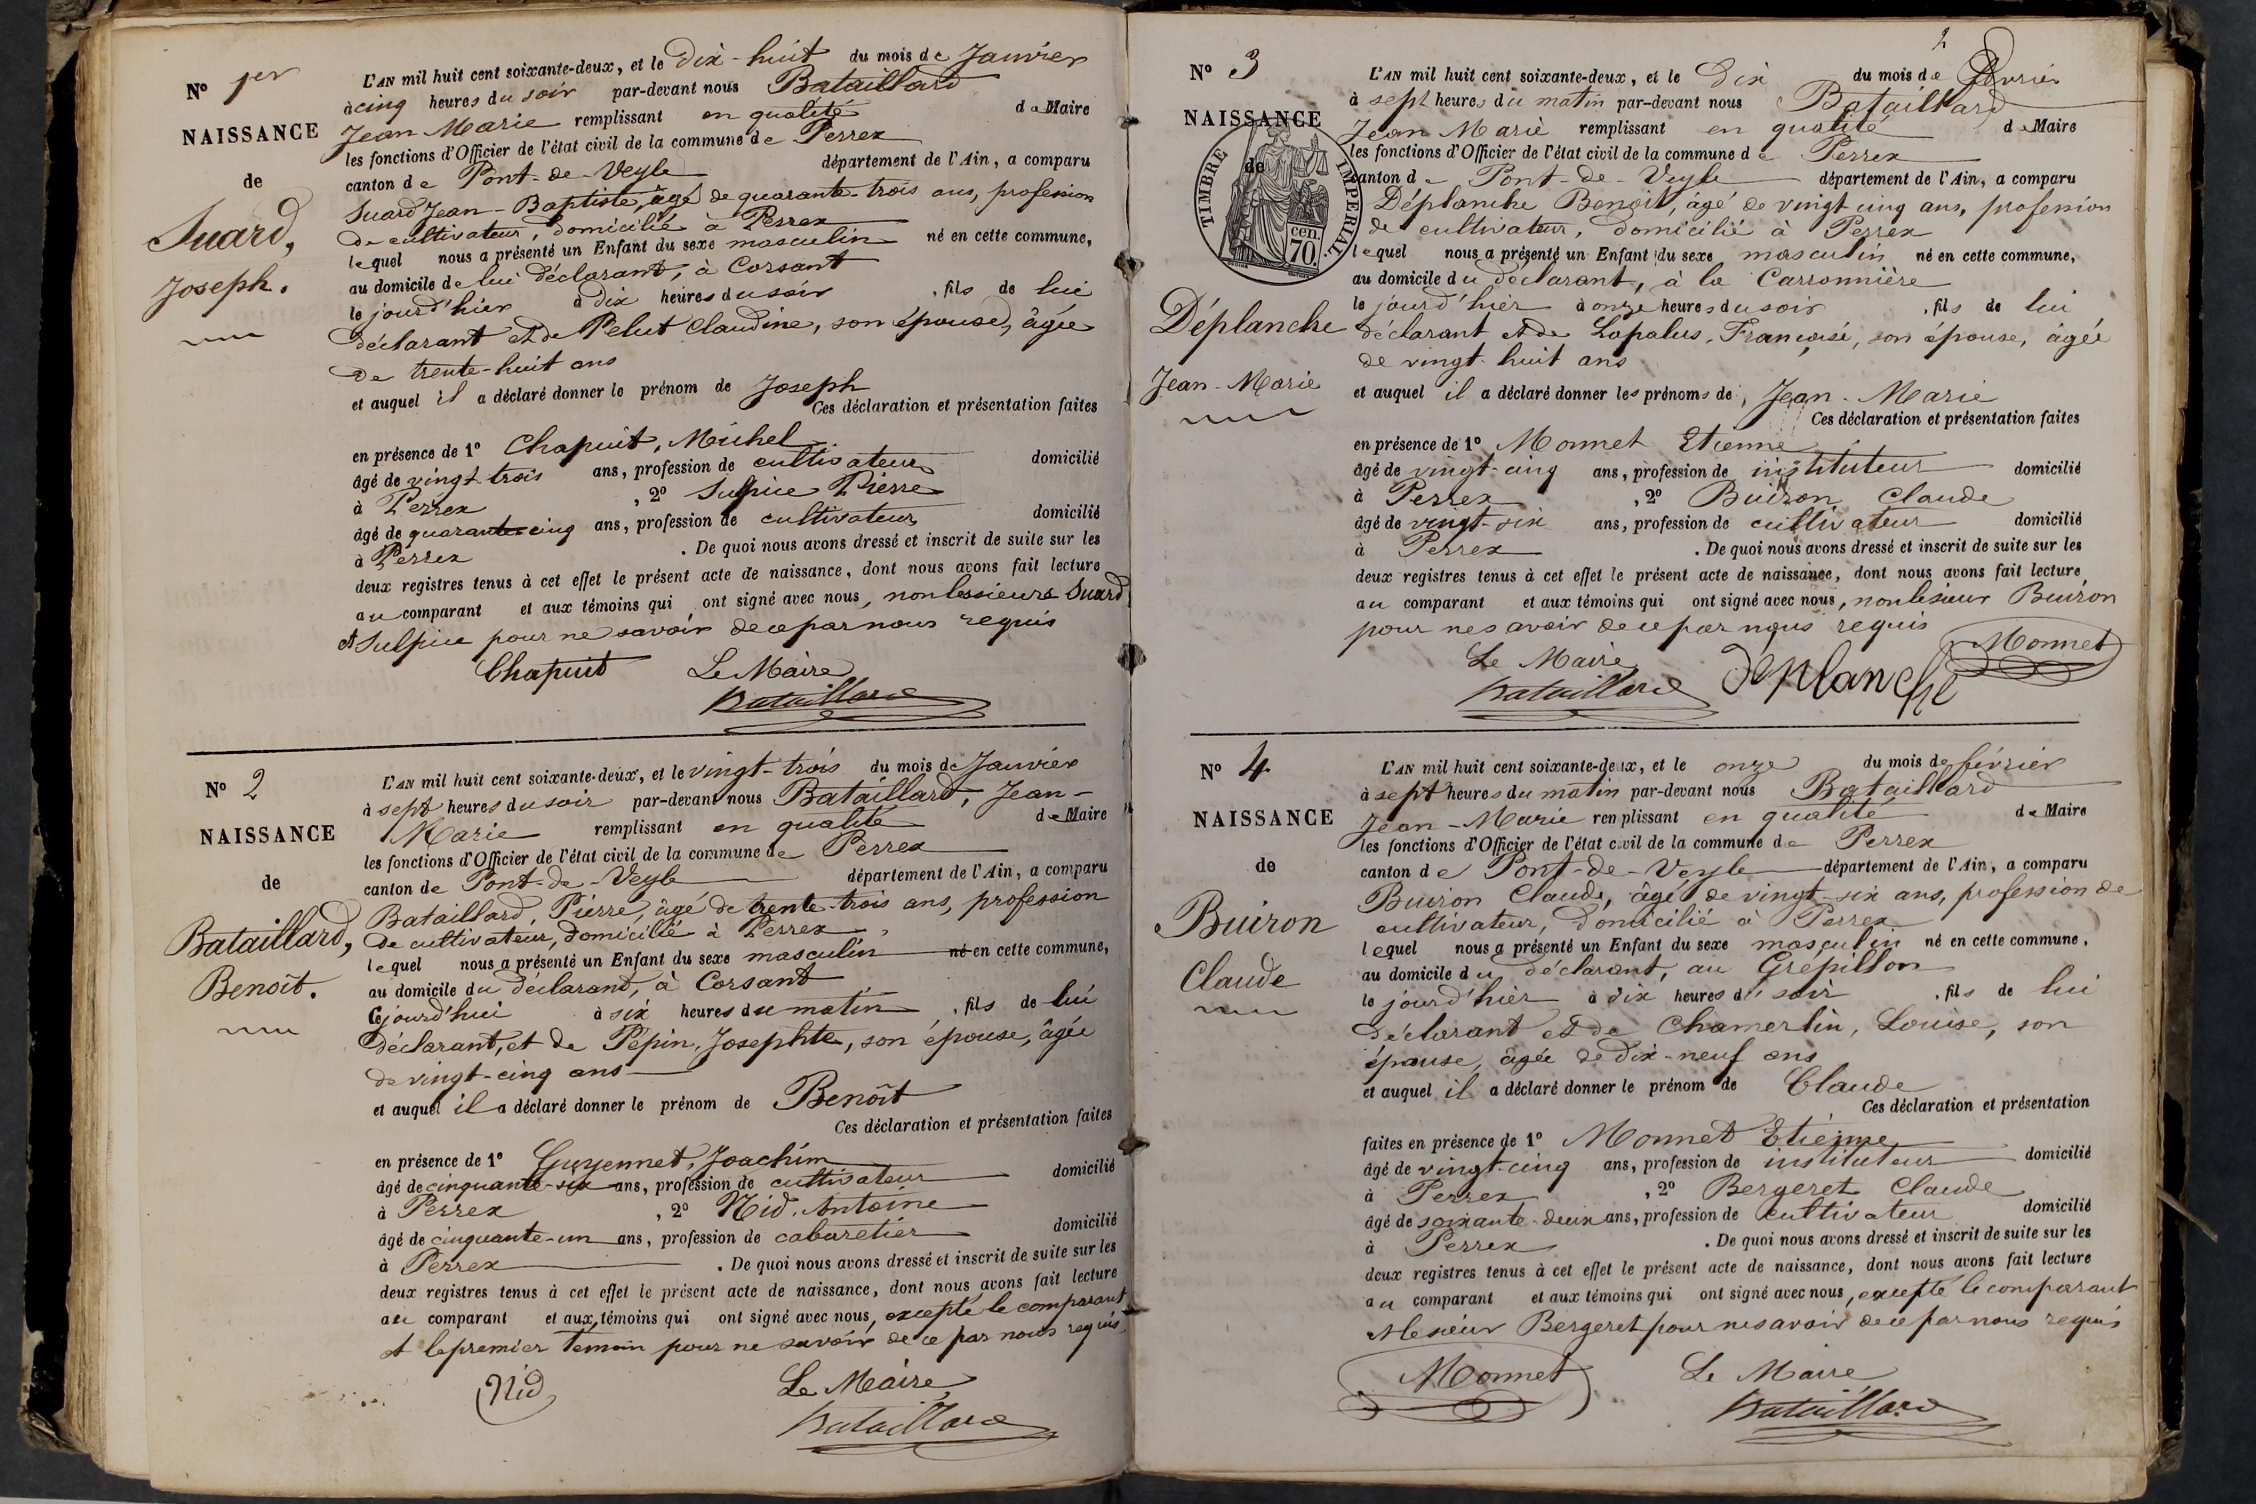 N° 1er
NAISSANCE
de
Suard,
Joseph.
L'AN mil huit cent soixante-deux, et le Dix-huit du mois de Janvier
à cinq heures du soir par-devant nous Bataillard
Jean Marie remplissant en qualité de Maire
les fonctions d'Officier de l'état civil de la commune de Perrex
canton de Pont-de-Veyle département de l'Ain, a comparu
Suard Jean-Baptiste, âgé de quarante-trois ans, profession
de cultivateur, domicilié à Perrex
lequel nous a présenté un Enfant du sexe masculin né en cette commune,
au domicile de lui déclarant, à Corsant
le jourd'hier à dix heures du soir, fils de lui
déclarant et de Pelut Claudine, son épouse, âgée
de trente-huit ans
et auquel il a déclaré donner le prénom de Joseph
Ces déclaration et présentation faites
en présence de 1° Chapuit, Michel
âgé de vingt-trois ans, profession de cultivateur domicilié
à Perrex, 2° Sulpice Pierre
âgé de quarante-cinq ans, profession de cultivateur domicilié
à Perrex. De quoi nous avons dressé et inscrit de suite sur les
deux registres tenus à cet effet le présent acte de naissance, dont nous avons fait lecture
au comparant et aux témoins qui ont signé avec nous, non les sieurs Suard
et Sulpice pour ne savoir de ce par nous requis
Chapuit Le Maire
Bataillard
N° 2
NAISSANCE
de
Bataillard,
Benoît.
L'AN mil huit cent soixante-deux, et le vingt-trois du mois de Janvier
à sept heures du soir par-devant nous Bataillard, Jean-
Marie remplissant en qualité de Maire
les fonctions d'Officier de l'état civil de la commune de Perrex
canton de Pont-de-Veyle département de l'Ain, a comparu
Bataillard, Pierre, âgé de trente-trois ans, profession
de cultivateur, domicilié à Perrex,
lequel nous a présenté un Enfant du sexe masculin né en cette commune,
au domicile du déclarant, à Corsant
cejourd'hui à six heures du matin, fils de lui
déclarant, et de Pépin, Josephte, son épouse, âgée
de vingt-cinq ans
et auquel il a déclaré donner le prénom de Benoît
Ces déclaration et présentation faites
en présence de 1° Guyennet, Joachim
âgé de cinquante-six ans, profession de cultivateur domicilié
à Perrex, 2° Nid, Antoine
âgé de cinquante-un ans, profession de cabaretier domicilié
à Perrex. De quoi nous avons dressé et inscrit de suite sur les
deux registres tenus à cet effet le présent acte de naissance, dont nous avons fait lecture
au comparant et aux témoins qui ont signé avec nous, excepté le comparant
et le premier témoin pour ne savoir de ce par nous requis.
Nid Le Maire
Bataillard
2
N° 3
NAISSANCE
de
TIMBRE IMPERIAL
70 cen.
Déplanche
Jean-Marie
L'AN mil huit cent soixante-deux, et le Dix du mois de Février
à sept heures du matin par-devant nous Bataillard
Jean Marie remplissant en qualité de Maire
les fonctions d'Officier de l'état civil de la commune de Perrex
canton de Pont-de-Veyle département de l'Ain, a comparu
Déplanche Benoit, âgé de vingt cinq ans, profession
de cultivateur, domicilié à Perrex
lequel nous a présenté un Enfant du sexe masculin né en cette commune,
au domicile du déclarant, à la Carronnière
le jourd'hier à onze heures du soir, fils de lui
déclarant et de Lapalus, Françoise, son épouse, âgée
de vingt-huit ans
et auquel il a déclaré donner les prénoms de, Jean-Marie
Ces déclaration et présentation faites
en présence de 1° Monnet Etienne
âgé de vingt-cinq ans, profession de instituteur domicilié
à Perrex, 2° Buiron Claude
âgé de vingt-six ans, profession de cultivateur domicilié
à Perrex. De quoi nous avons dressé et inscrit de suite sur les
deux registres tenus à cet effet le présent acte de naissance, dont nous avons fait lecture
au comparant et aux témoins qui ont signé avec nous, non le sieur Buiron
pour ne savoir de ce par nous requis
Monnet
Le Maire déplanche
Bataillard
N° 4
NAISSANCE
de
Buiron
Claude
L'AN mil huit cent soixante-deux, et le onze du mois de février
à sept heures du matin par-devant nous Bataillard
Jean-Marie remplissant en qualité de Maire
les fonctions d'Officier de l'état civil de la commune de Perrex
canton de Pont-de-Veyle département de l'Ain, a comparu
Buiron Claude, âgé de vingt-six ans, profession de
cultivateur, domicilié à Perrex
lequel nous a présenté un Enfant du sexe masculin né en cette commune,
au domicile du déclarant, au Grépillon
le jourd'hier à dix heures du soir, fils de lui
déclarant et de Chamerlin, Louise, son
épouse, âgée de dix-neuf ans
et auquel il a déclaré donner le prénom de Claude
Ces déclaration et présentation
faites en présence de 1° Monnet Etienne
âgé de vingt-cinq ans, profession de instituteur domicilié
à Perrex, 2° Bergeret Claude
âgé de soixante-deux ans, profession de cultivateur domicilié
à Perrex. De quoi nous avons dressé et inscrit de suite sur les
deux registres tenus à cet effet le présent acte de naissance, dont nous avons fait lecture
au comparant et aux témoins qui ont signé avec nous, excepté le comparant
et le sieur Bergeret pour ne savoir de ce par nous requis
Monnet Le Maire
Bataillard